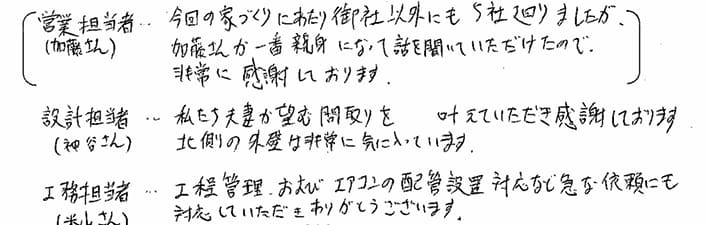 営業担当者‥今回の家づくりにあたり御社以外にも5社回りましたが、
(加藤さん) 加藤さんが一番親身になって話を聞いていただけたので、
非常に感謝しております.
設計担当者‥私たち夫妻が望む間取りを 叶えていただき感謝しております
(神谷さん) 北側の外壁は非常に気に入っています.
工務担当者…工程管理.およびエアコンの配管設置対応など急な依頼にも
さん) 対応していただきありがとうございます.